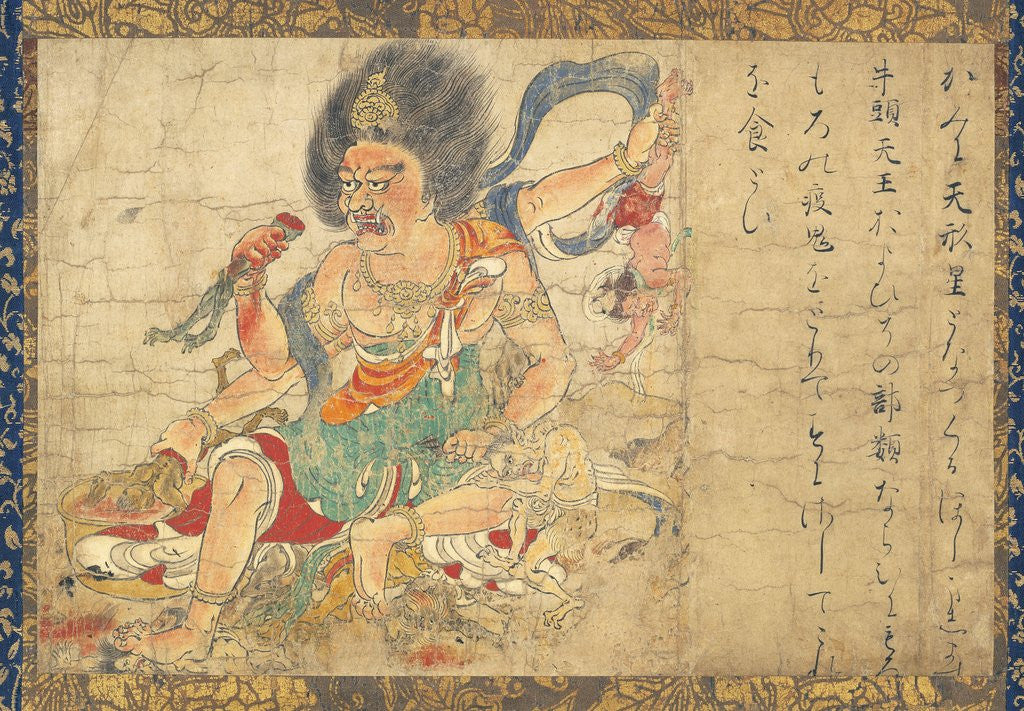 かみに天形星となつくるほし
牛頭天王およひその部類ならひにもろ
もろの疫鬼をとりてすにさしてこれ
を食とす